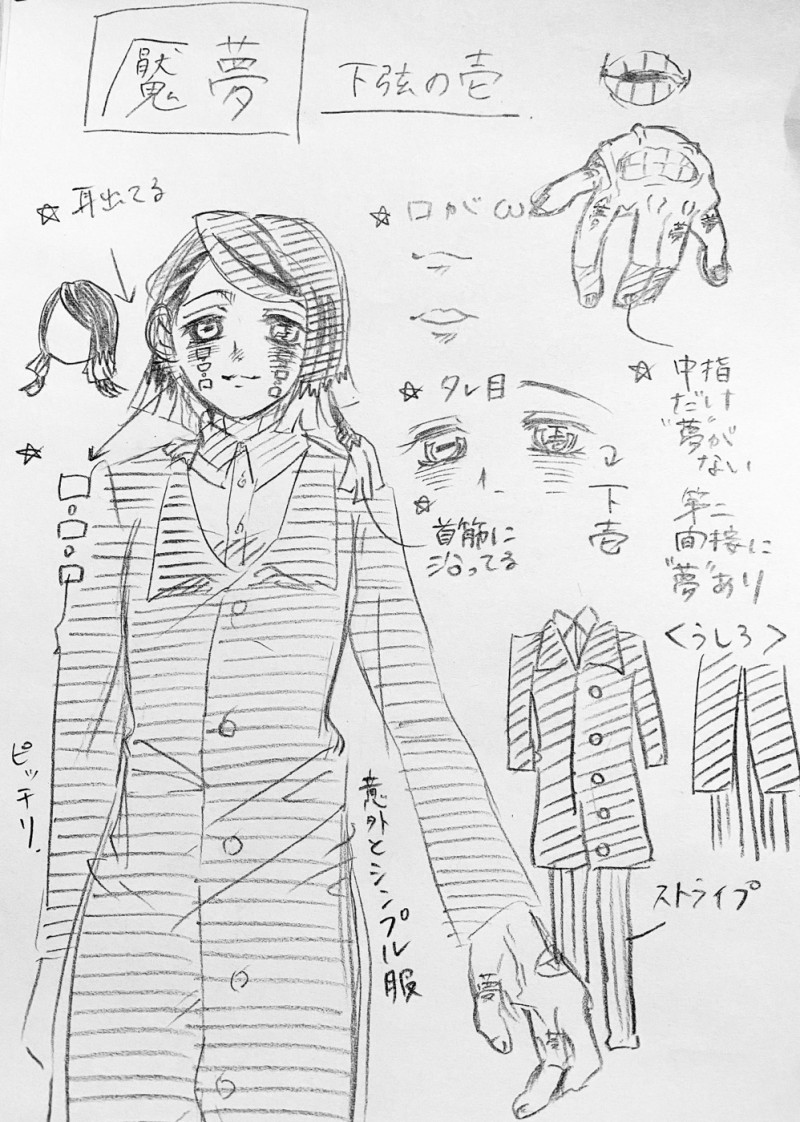 魘夢
下弦の壱
☆ 耳出てる
☆ 口がω
☆ タレ目
☆ 中指
だけ
"夢"が
ない
第二
間接に
"夢"あり
下壱
☆
首筋に
沿ってる
☆
<うしろ>
ピッチリ
意外とシンプル服
ストライプ
夢
夢
夢
夢